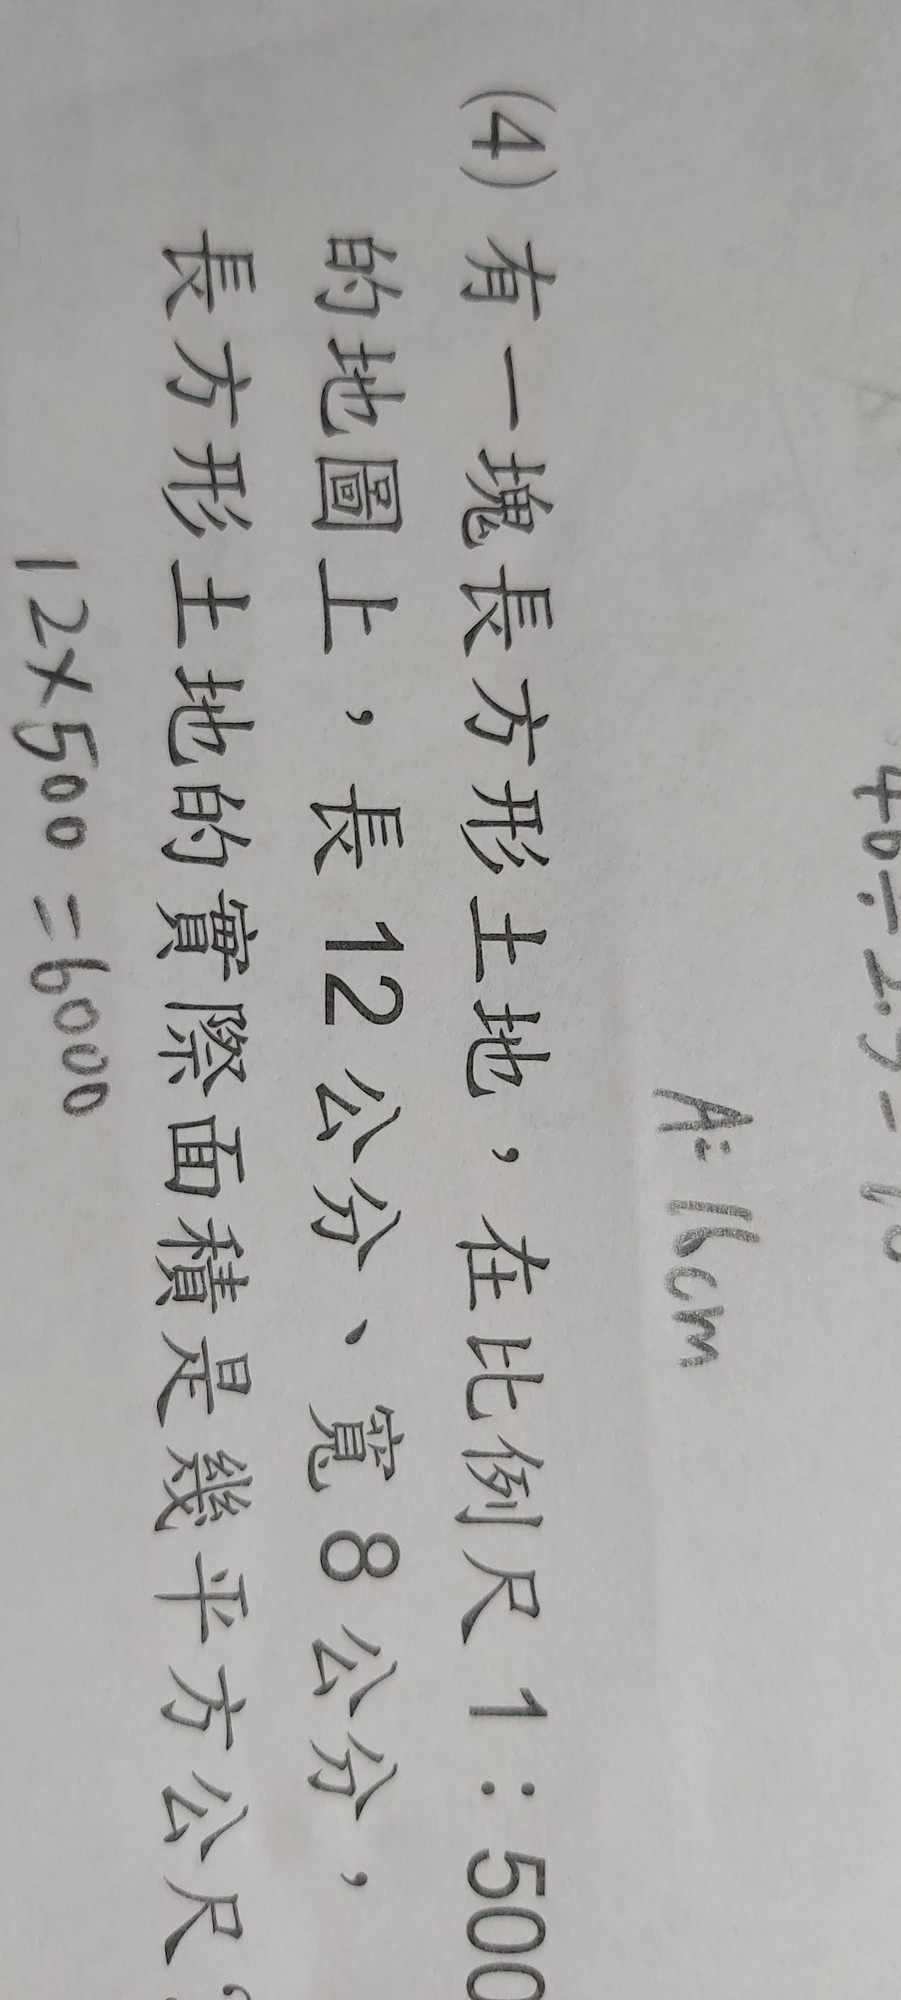 40÷2.5=16
A: 16cm
(4) 有一塊長方形土地，在比例尺 1：500
的地圖上，長 12 公分、寬 8 公分，
長方形土地的實際面積是幾平方公尺？
12×500=6000